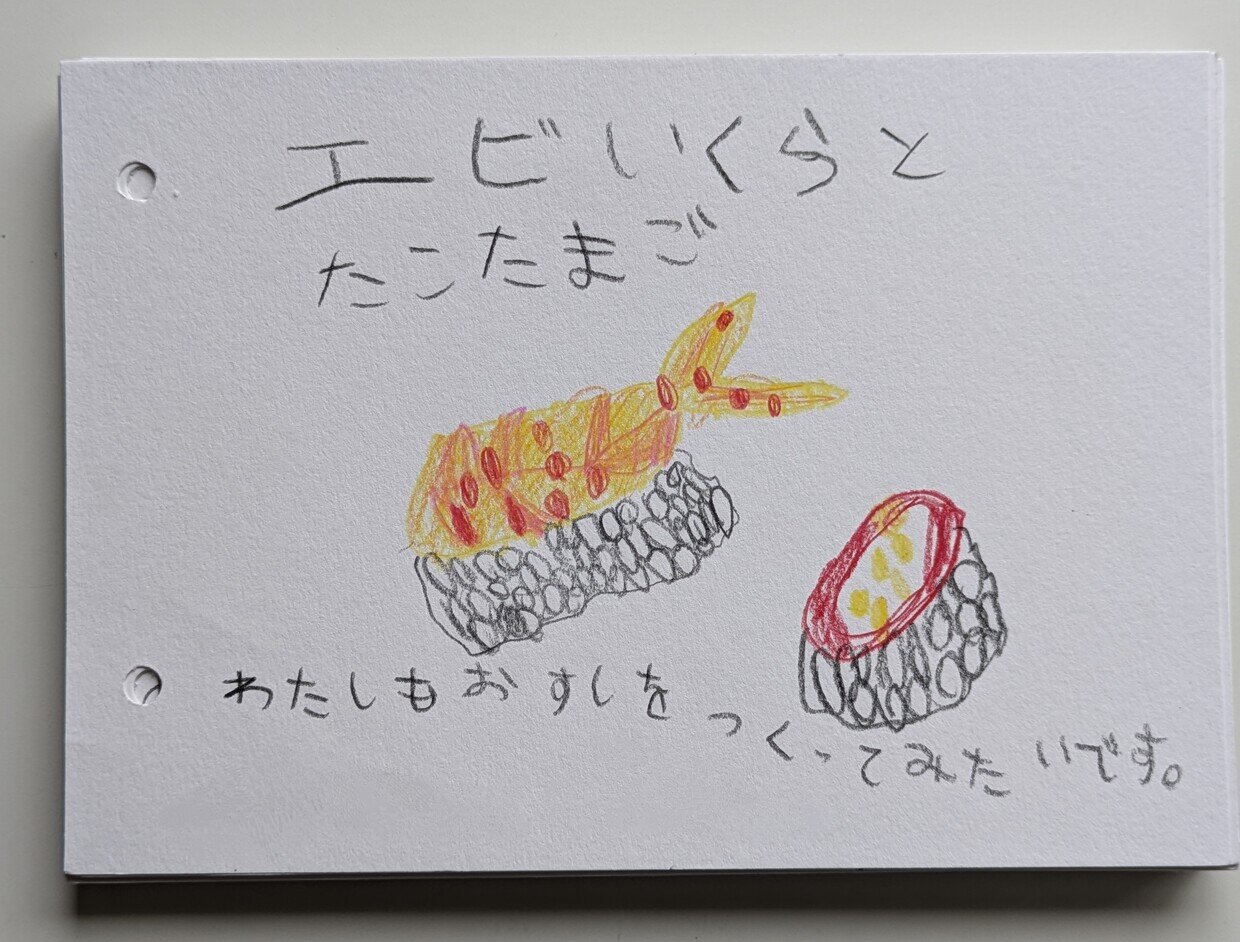 エビいくらと
たこたまご
わたしもおすしをつくってみたいです。